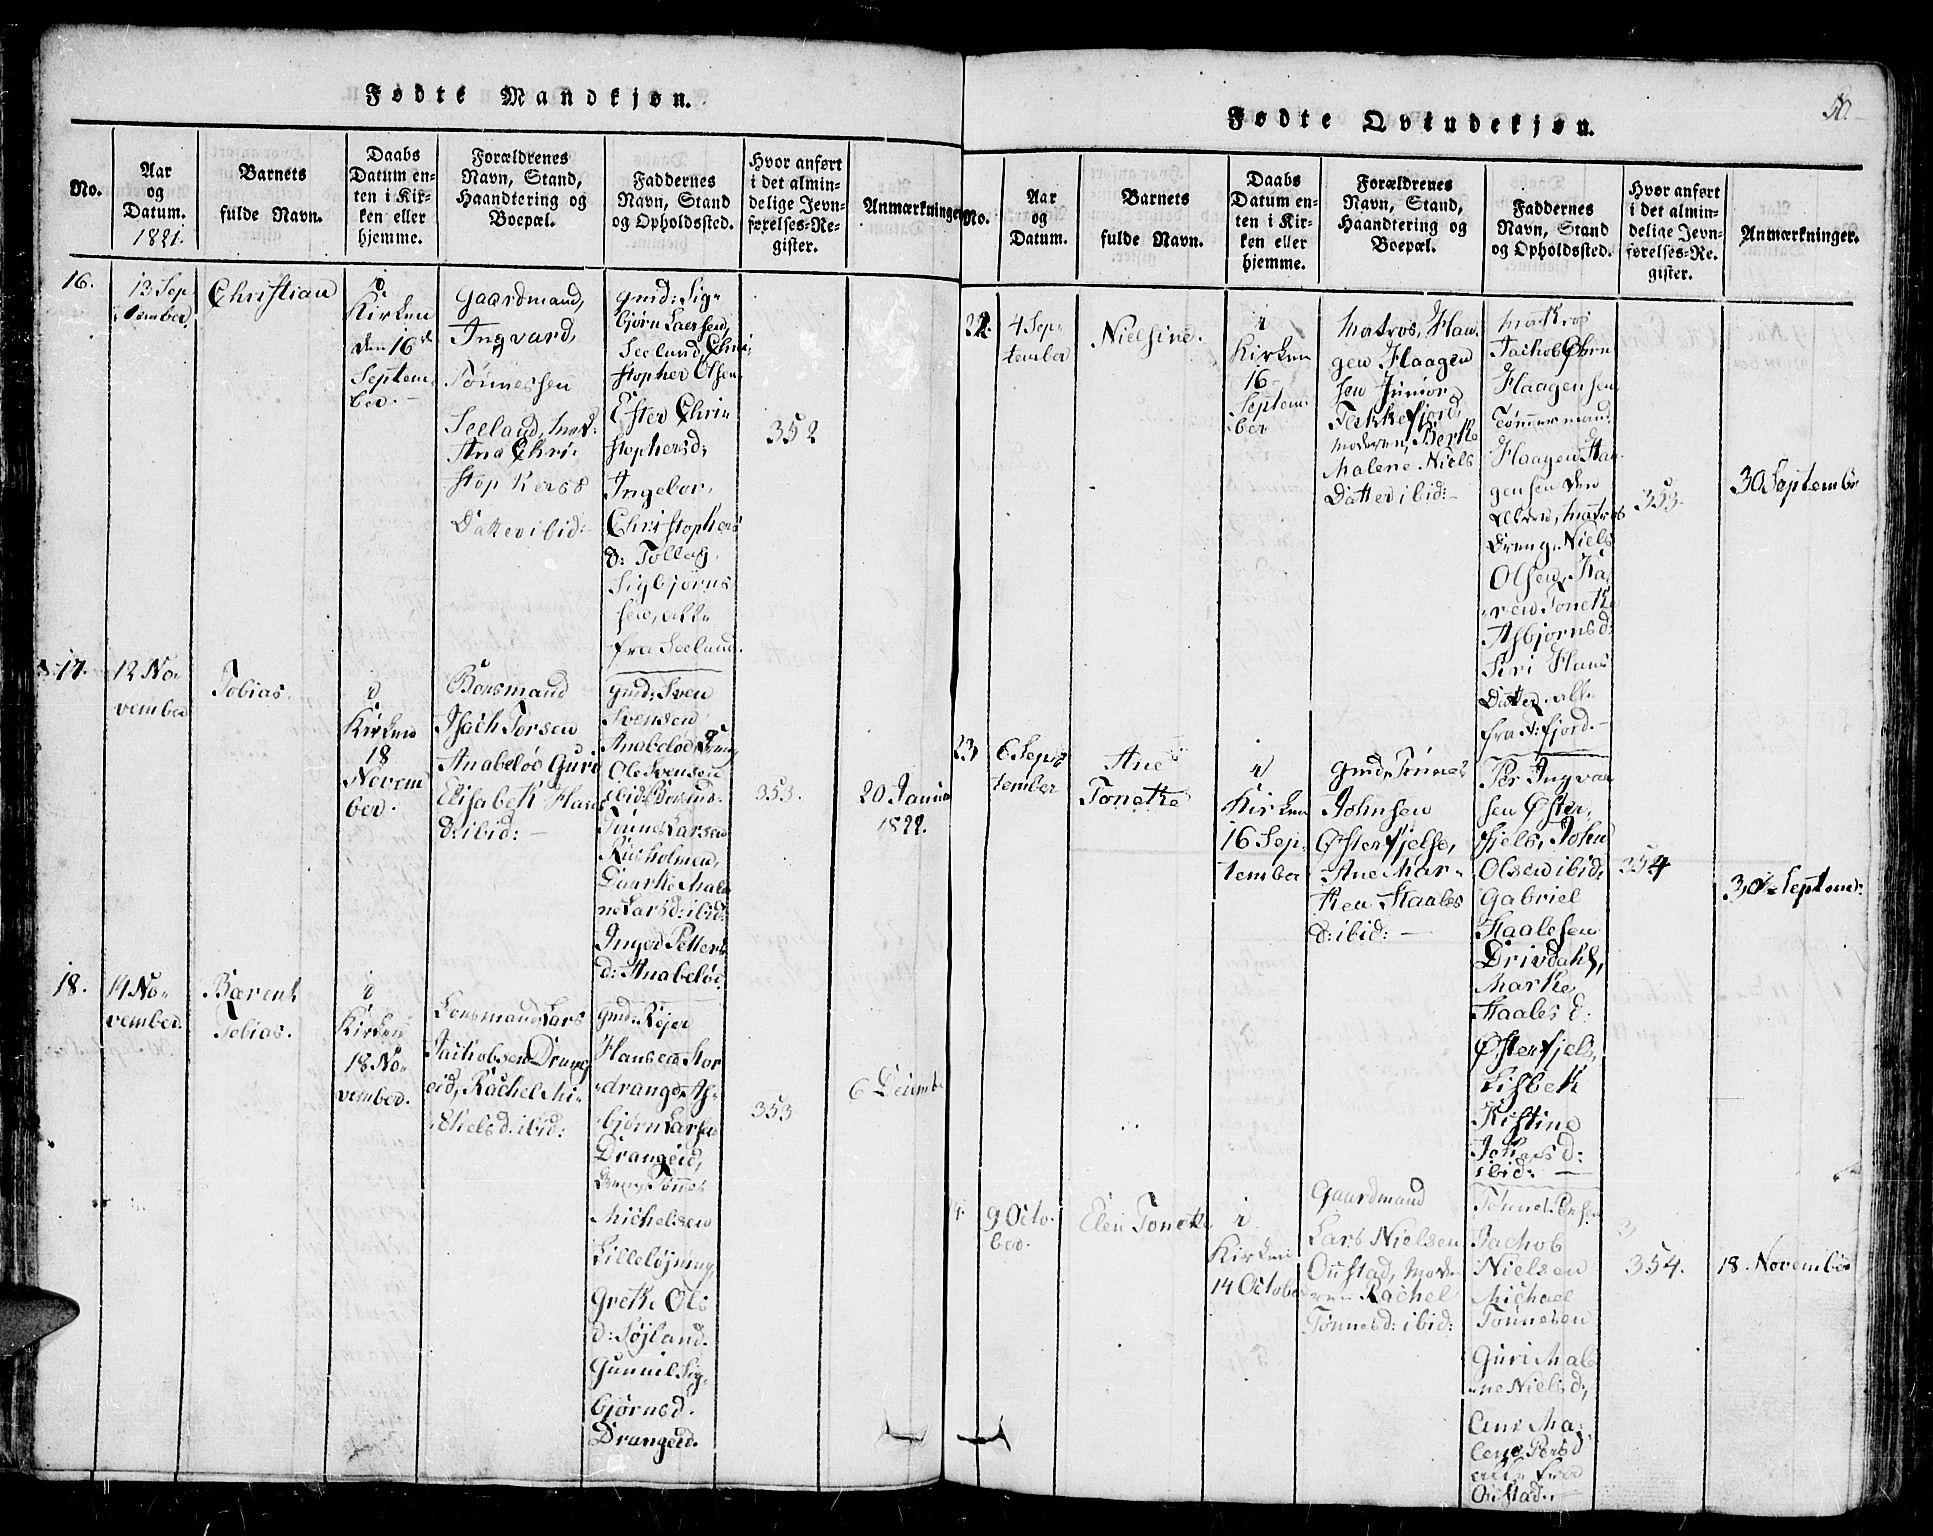 Fødte Mandkjøn.
No.
Aar
og
Datum.
1821.
Barnets
fulde Navn.
Daabs
Datum en-
ten i Kir-
ken eller
hjemme.
Forældrenes
Navn, Stand,
Haandtering og
Boepæl.
Faddernes
Navn, Stand
og Opholdssted.
Hvor anført
i det almin-
delige Jevn-
førelses-Re-
gister.
Anmærkninger.
16.
13 Sep-
tember
Christian
i
Kirken
den 16de
Septem-
ber.
Gaardmand,
Ingvard,
Tönnessen
Seeland, Mod:
Ana Chri-
stophers
Datter ibid:
gmd: Sig-
bjørn Larsen,
Seeland, Chri-
stopher Olsen
Ester Chri-
stophersd:
Ingebor,
Christophers
d: Tollag,
Sigbjørns
sen, alle
fra Seeland.
352
17.
12 No-
vember
Tobias.
i
Kirken
18
Novem
ber.
Bonsmand
Isach Torsen
Anabeløe Guri
Elisabeth Hans
d: ibid:
gmd: Sven
Svensen
Anabeløe, Dreng
Ole Svensen
ibid:
Tönnes Larsen
Risholmen,
Daarthe Male
ne Larsd: ibid:
Inger Petters
d: Anabeløe.
353.
20 Janua
1822.
18.
14 No-
vember.
Bærent
Tobias.
i
Kirken
18 No-
vember.
Lensmand Lars
Jachobsen Drang
eid, Rachel Mi-
chelsd: ibid:
gmd: Rejer
Hansen Stor
drange, As-
bjørn Larsen
Drangeid,
Dreng Tönnes
Michelsen
Lilleløjning,
Grethe Ols
d: Søjland.
Gunnil Sig-
bjørnsd.
Drangeid.
353
6 Decembe
50.
Fødte Qvindekjøn.
No.
Aar
og
Datum.
Barnets
fulde Navn.
Daabs
Datum en-
ten i Kir-
ken eller
hjemme.
Forældrenes
Navn, Stand,
Haandtering og
Boepæl.
Faddernes
Navn, Stand
og Opholdssted.
Hvor anført
i det almin-
delige Jevn-
førelses-Re-
gister.
Anmærkninger.
22.
4 Sep-
tember
Nielsine.
i
Kirken
16
Septem
ber
Matros, Haa-
gen Haagen
sen Junior,
Fekkefjord,
Moderen, Berthe
Malene Niels
Datter ibid:
Matros
Jachob Chrn
Haagensen
Tømmermand
Haagen Haa-
gensen den
Ældere, Matros
Dreng Niels
Olsen, Ka-
ren Tonethe
Asbjørnsd:
Siri Hans
Datter, alle
fra F:fjord.
353.
30 Septembr
23,
6 Sep-
tember
Ane
Tonethe
i
Kirken
16 Sep-
tember
gmd: Tönnes
Johnsen
Østerfjelse,
Ane Mar-
then Staales
d: ibid:
Per Ingvar
sen Øster,
fjels, John
Olsen ibid,
Gabriel
Staalesen
Drivdahl,
Marthe
Staales d:
Østerfjels,
Lisbeth
Kistine
Johns d:
ibid:
354
30 Septembr:
4.
9 Octo-
ber.
Elen Tonethe
i
Kirken
14 October
Gaardmand
Lars Nielsen
Oustad, Mode-
ren Rachel
Tønnesd: ibid:
Tönnes Persen
Jachob
Nielsen
Michael
Tönnesen
Guri Mal-
ene Nielsd,
Ane Ma-
lene Persd
alle fraa
Oustad.
354.
18. November